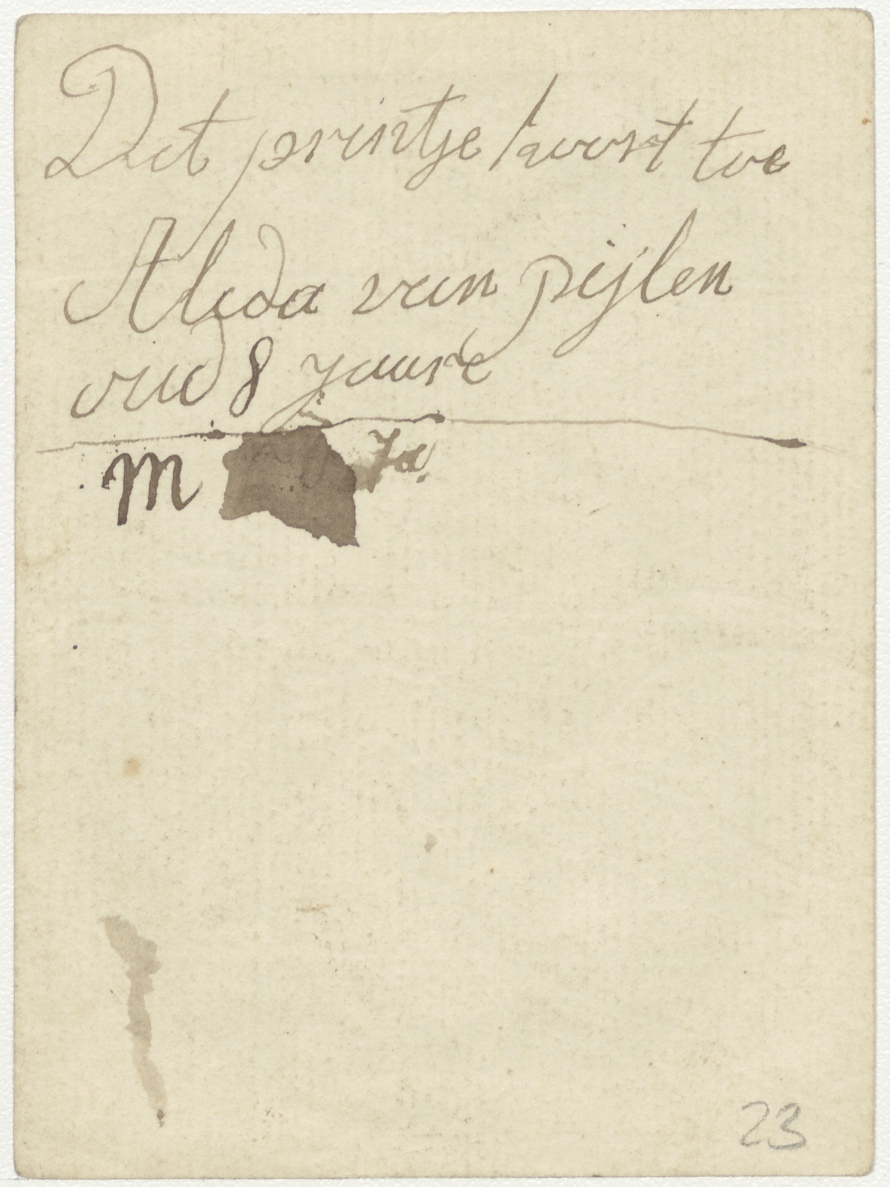 Dit printje hoort toe
Aleda van pijlen
oud 8 jaare
M
23